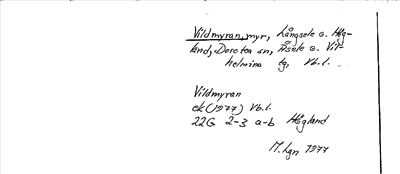 Vildmyran, myr, Långsele o. Hög-
land, Dorotea sn, Åsele o. Vil-
helmina tg, Vb.l.
Vildmyran
ek (1977) Vb.l.
22G 2-3 a-b Högland
M.hgn 1977